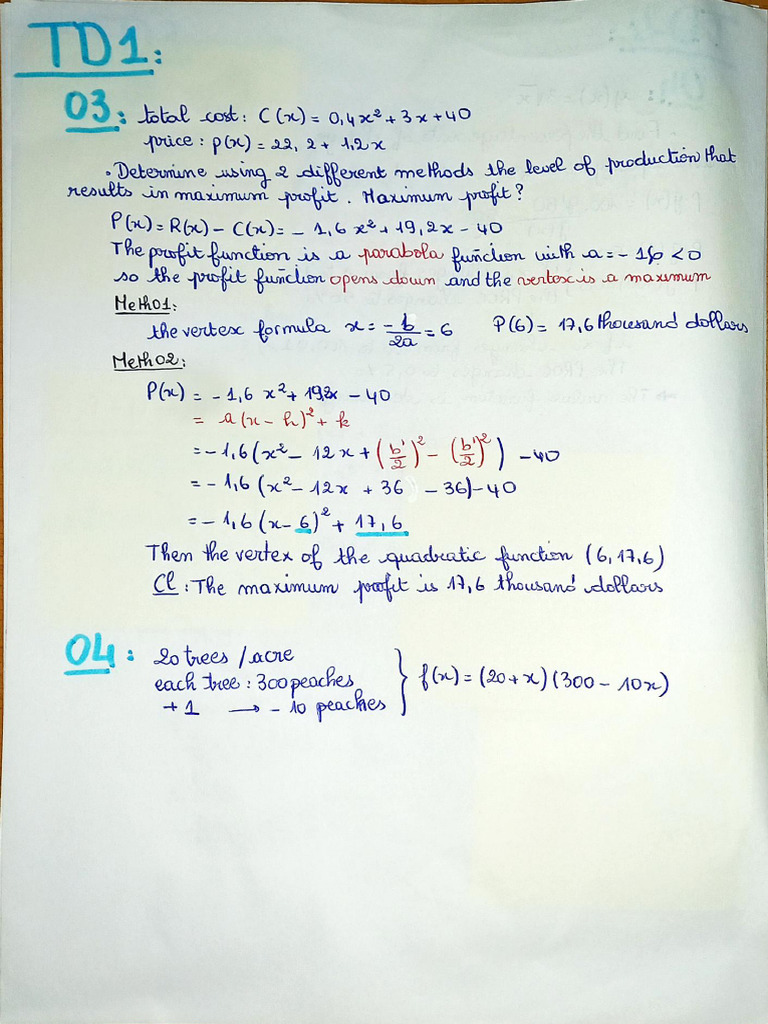 TD1:
03: total cost: C(x) = 0,4x² + 3x + 40
price: p(x) = 22,2 + 1,2x
. Determine using 2 different methods the level of production that
results in maximum profit. Maximum profit?
P(x) = R(x) - C(x) = - 1,6x² + 19,2x - 40
The profit function is a parabola function with a = - 16 < 0
so the profit function opens down and the vertex is a maximum
Meth01:
the vertex formula x = -b/2a = 6 P(6) = 17,6 thousand dollars
Meth02:
P(x) = - 1,6 x² + 19,2x - 40
= a(x - h)² + k
= - 1,6 (x² - 12x + (b'/2)² - (b'/2)²) - 40
= - 1,6 (x² - 12x + 36 - 36) - 40
= - 1,6 (x - 6)² + 17,6
Then the vertex of the quadratic function (6, 17,6)
Cl: The maximum profit is 17,6 thousand dollars
04: 20 trees / acre
each tree: 300 peaches } f(x) = (20 + x)(300 - 10x)
+ 1 → - 10 peaches